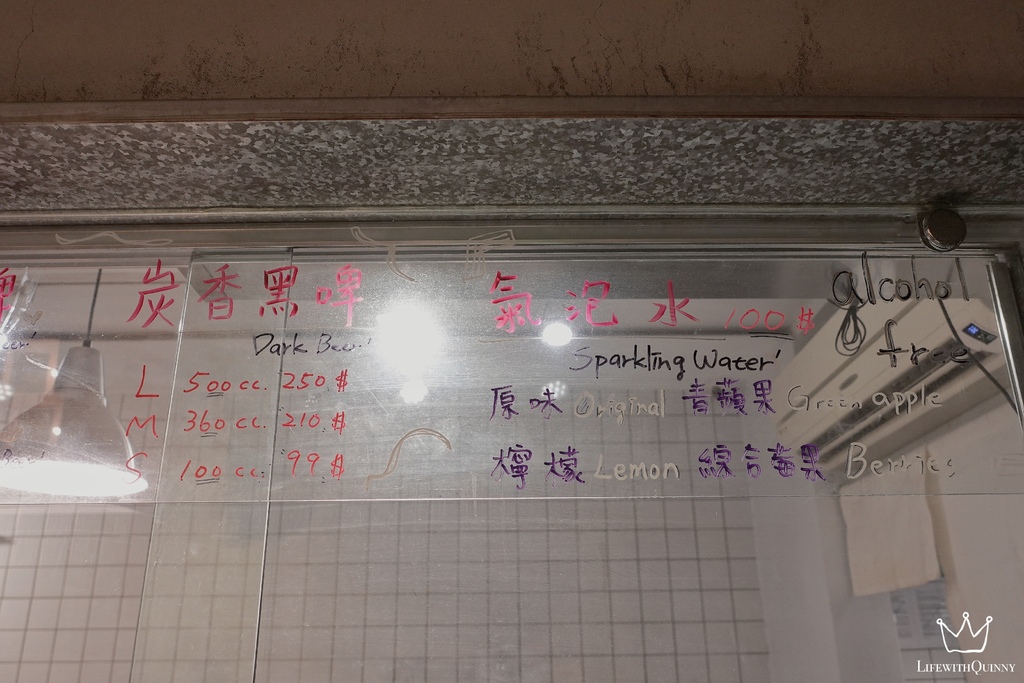 炭香黑啤
Dark Beer
L 500cc. 250 $
M 360cc. 210 $
S 100cc. 99 $
氣泡水 100 $
alcohol
free
Sparkling Water
原味 Original 青蘋果 Green apple
檸檬 Lemon 綜合莓果 Berries
LIFEWITHQUINNY